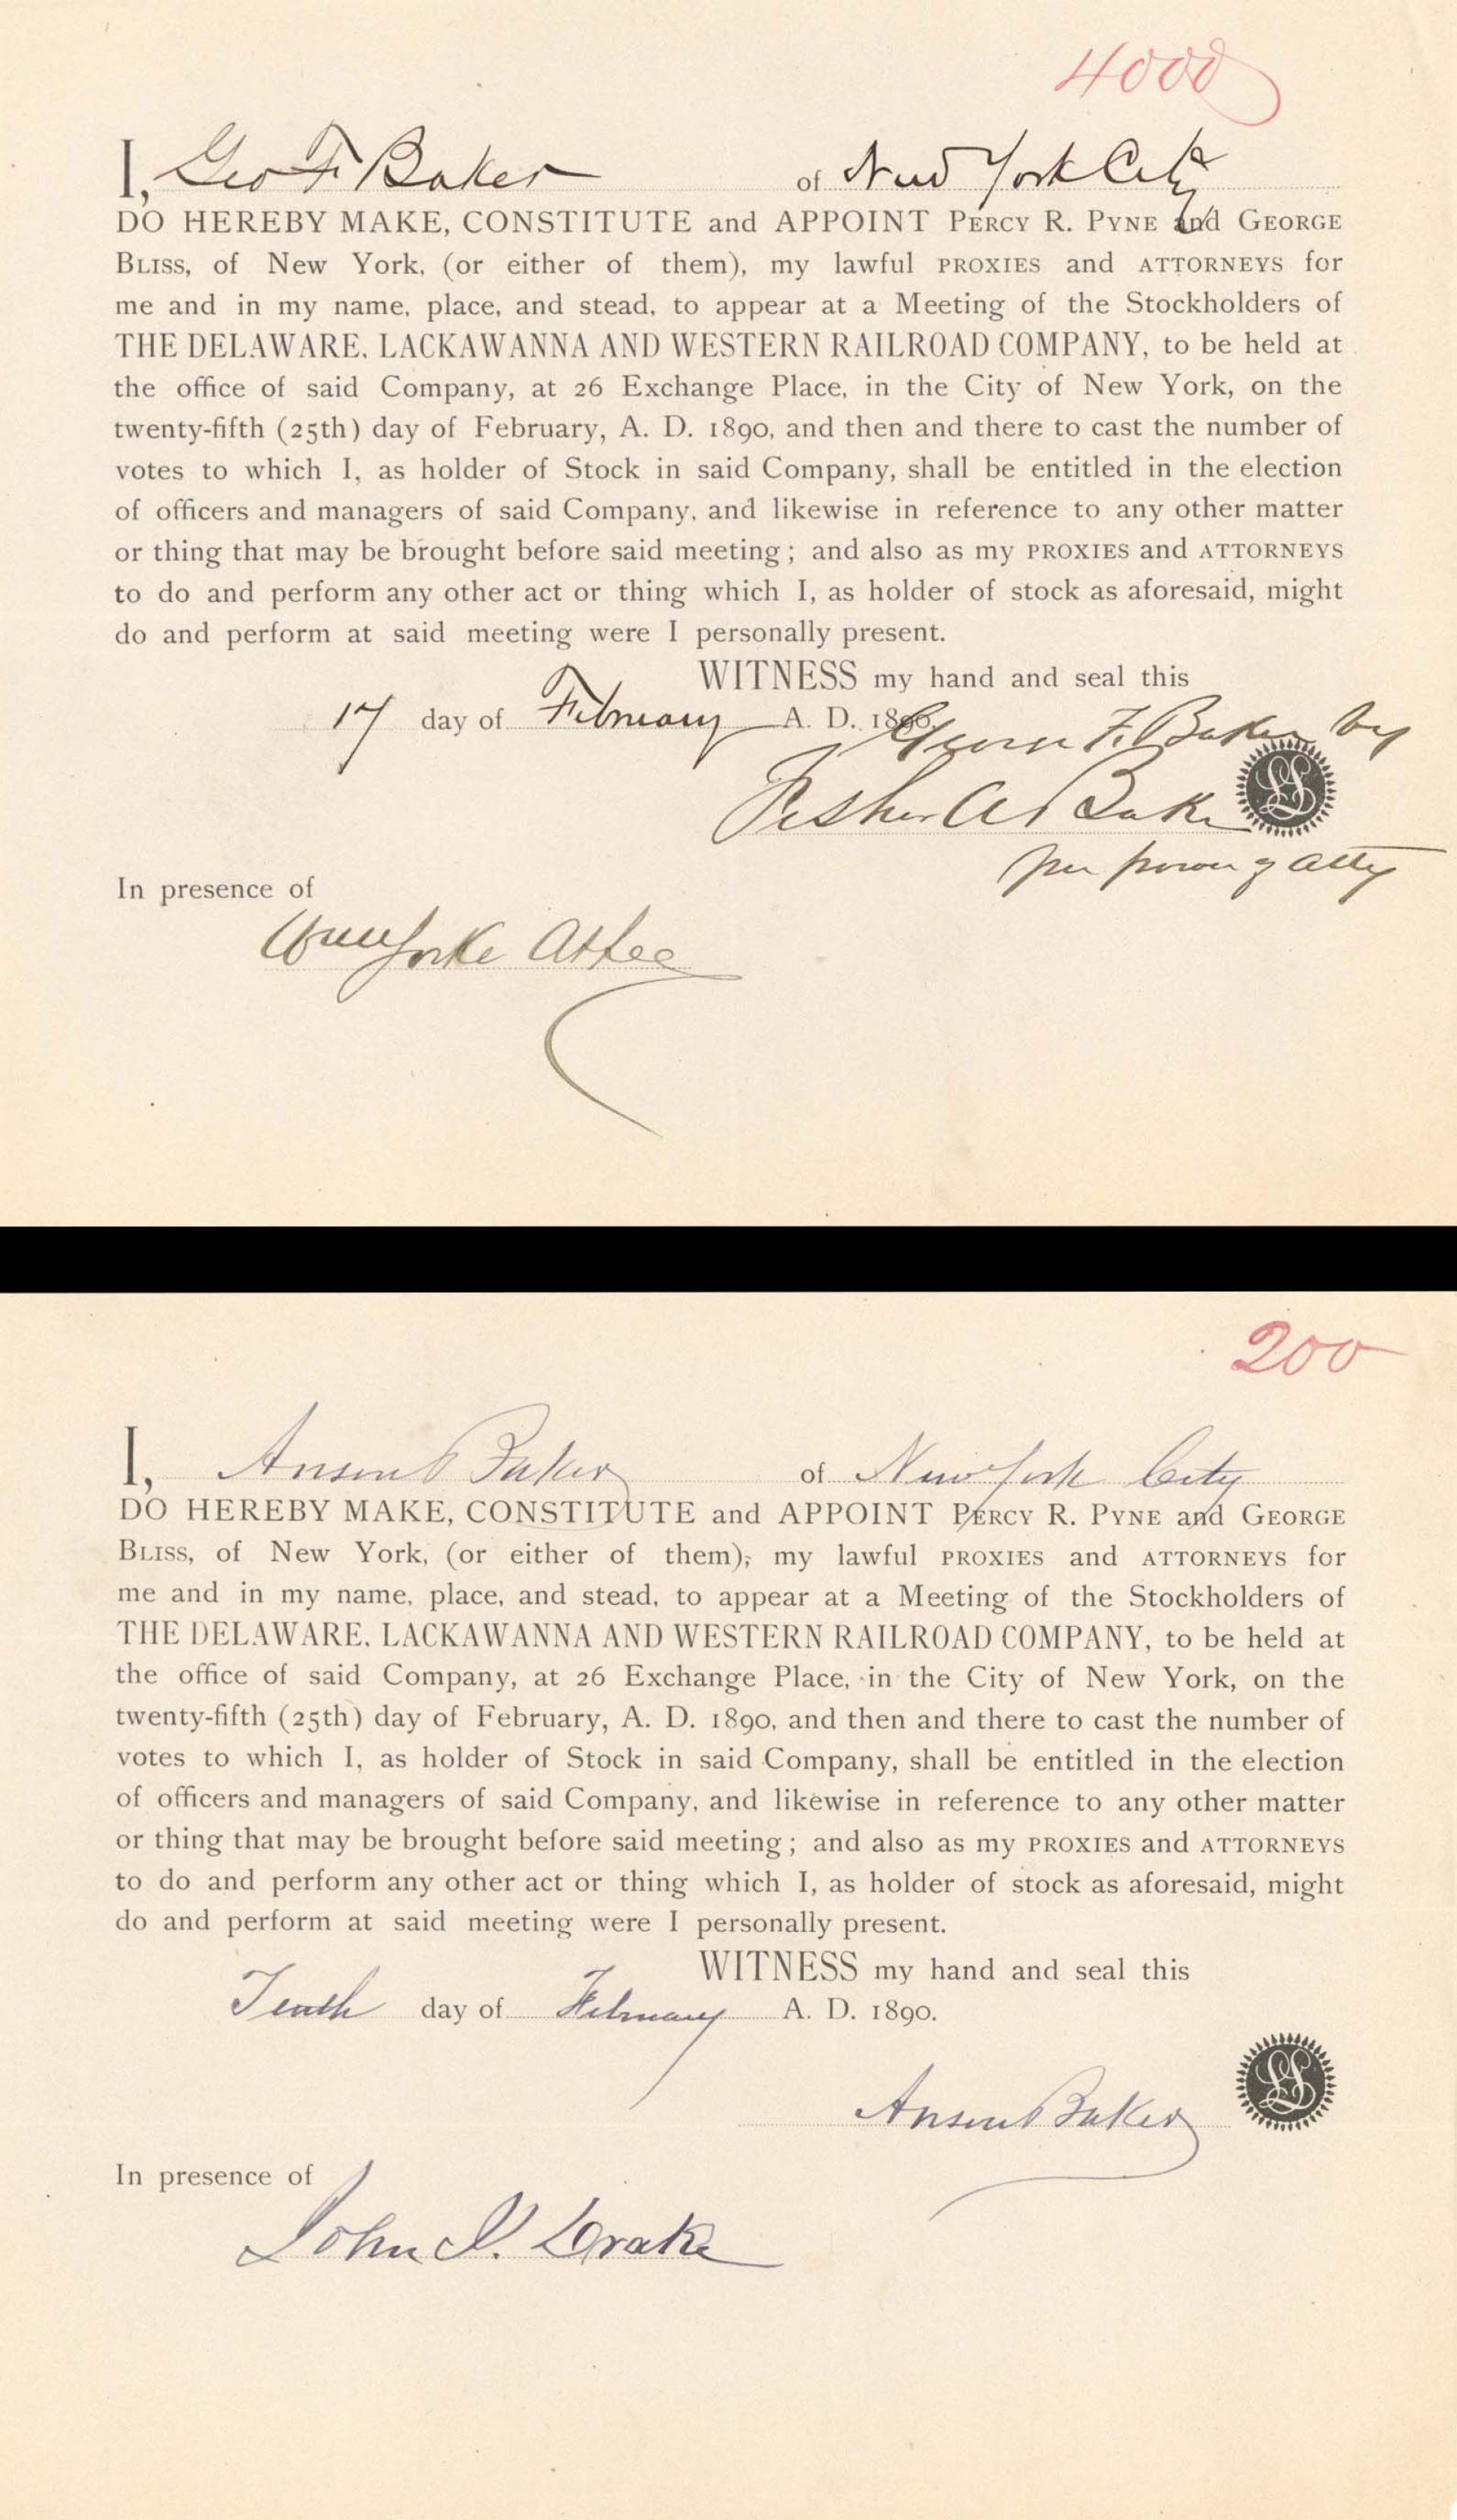 4000
I, Geo F. Baker of New York City
DO HEREBY MAKE, CONSTITUTE and APPOINT PERCY R. PYNE and GEORGE
BLISS, of New York, (or either of them), my lawful PROXIES and ATTORNEYS for
me and in my name, place, and stead, to appear at a Meeting of the Stockholders of
THE DELAWARE, LACKAWANNA AND WESTERN RAILROAD COMPANY, to be held at
the office of said Company, at 26 Exchange Place, in the City of New York, on the
twenty-fifth (25th) day of February, A. D. 1890, and then and there to cast the number of
votes to which I, as holder of Stock in said Company, shall be entitled in the election
of officers and managers of said Company, and likewise in reference to any other matter
or thing that may be brought before said meeting; and also as my PROXIES and ATTORNEYS
to do and perform any other act or thing which I, as holder of stock as aforesaid, might
do and perform at said meeting were I personally present.
WITNESS my hand and seal this
17 day of February A. D. 1890.
George F. Baker by
Fisher A. Baker
LS
per power of atty
In presence of
Atlee
200
I, Anson Baker of New York City
DO HEREBY MAKE, CONSTITUTE and APPOINT PERCY R. PYNE and GEORGE
BLISS, of New York, (or either of them), my lawful PROXIES and ATTORNEYS for
me and in my name, place, and stead, to appear at a Meeting of the Stockholders of
THE DELAWARE, LACKAWANNA AND WESTERN RAILROAD COMPANY, to be held at
the office of said Company, at 26 Exchange Place, in the City of New York, on the
twenty-fifth (25th) day of February, A. D. 1890, and then and there to cast the number of
votes to which I, as holder of Stock in said Company, shall be entitled in the election
of officers and managers of said Company, and likewise in reference to any other matter
or thing that may be brought before said meeting; and also as my PROXIES and ATTORNEYS
to do and perform any other act or thing which I, as holder of stock as aforesaid, might
do and perform at said meeting were I personally present.
WITNESS my hand and seal this
Tenth day of February A. D. 1890.
LS
Anson Baker
In presence of
John J. Drake